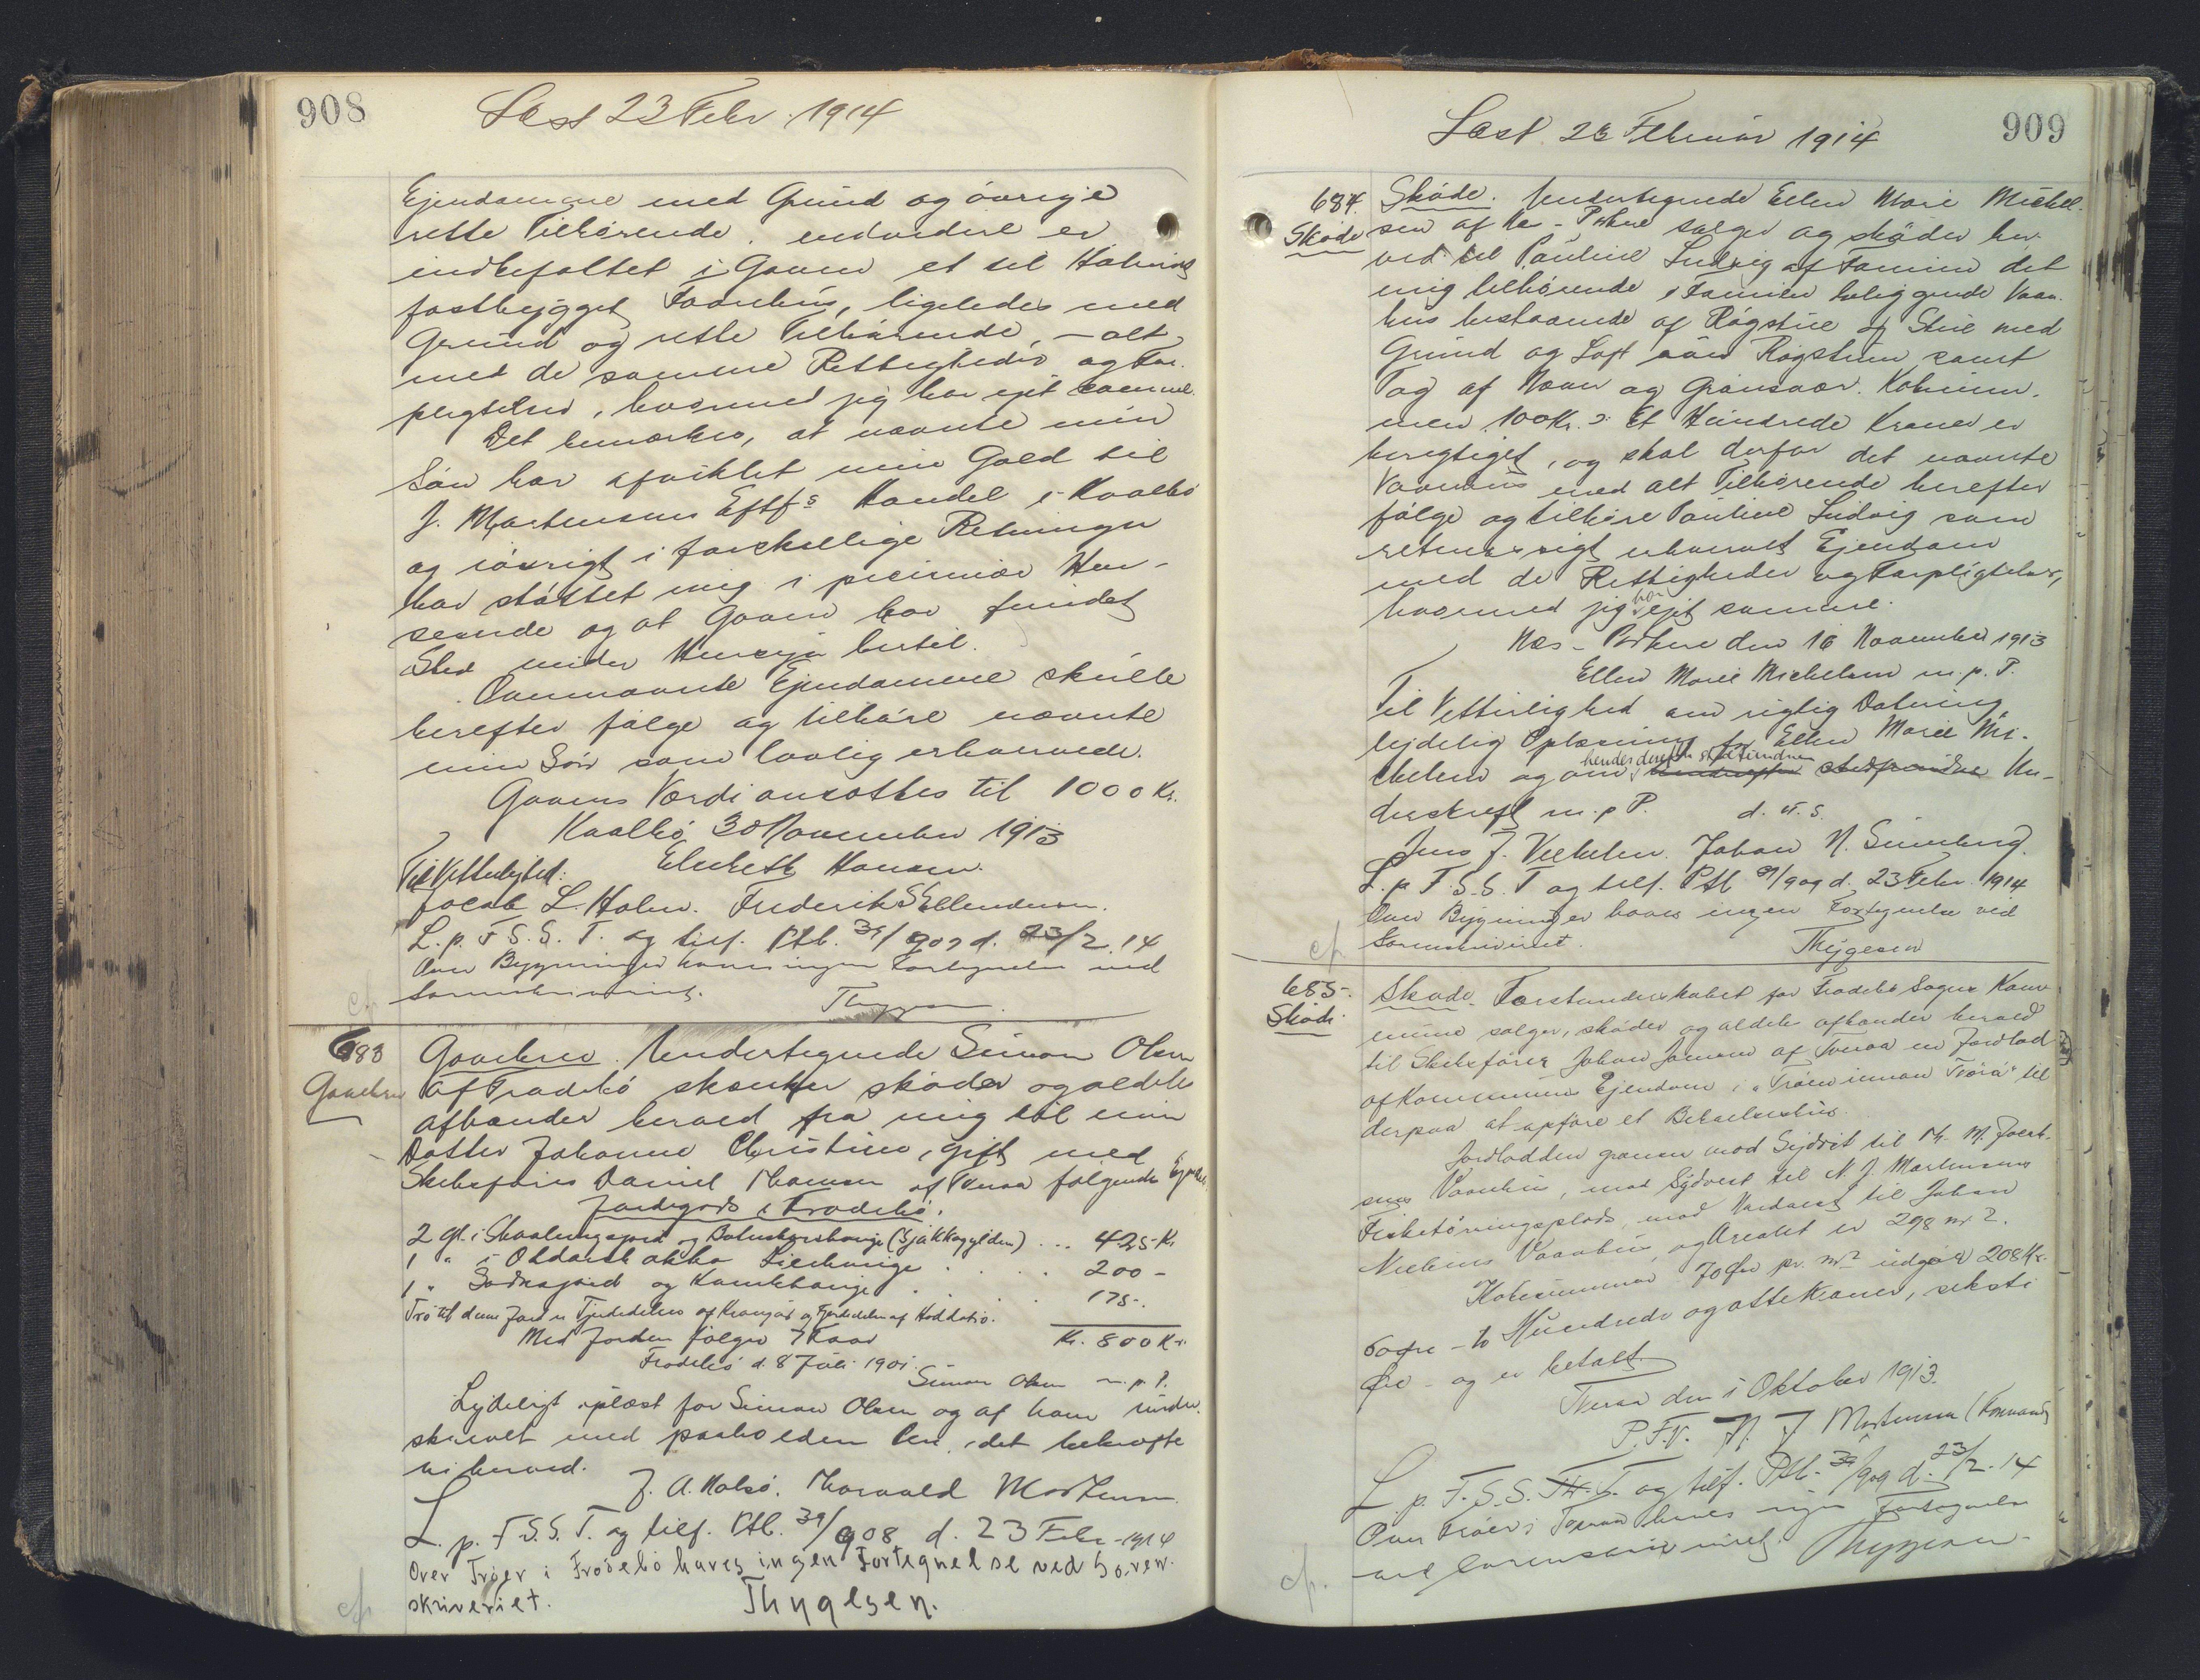 908
Læst 23 Febr. 1914
Ejendommene med Grund og övrige
rette Tilhörende. endvidere er
indbefattet i Gaven et til
fastbygget Vaanhus, ligeledes med
Grund og rette Tilhörende, - alt
med de samme Rettigheder og For-
pligtelser, hvormed jeg har ejet samme.
Det bemærkes, at nævnte min
Sön har afviklet min Gæld til
J. Mortensens Eftfs Handel i Kvalbö
og iövrigt i forskellige Retninger
har stöttet mig i pecuniær Hen-
seende og at Gaven har fundet
Sted under Hensyn hertil.
Ovennævnte Ejendomme skulle
herefter fölge og tilhöre nævnte
min Sön som lovlig erhvervede.
Gavens Værdi ansættes til 1000 Kr.
Kvalbö, 30 November 1913
Til Vitterlighed: Elsebeth Hansen.
Jacob L. Holm. Frederik S Ellendersen.
L. p. F. S. S. T. og tilf. Ptb. 39/907 d. 23/2.14
Over Bygninger haves ingen Fortegnelse ved
Sorenskriveriet. Thygesen
683 Gavebrev. Undertegnede Simon Olsen
Gavebrev af Frodebö skænker skøder og aldeles
afhænder herved fra mig til min
Datter Johanne Christine, gift med
Skibsförer Daniel Thomsen af Tveraa følgende Ejendom.
Jordegods i Frodebö.
2 Gl. i og (Sjákkagylden) ... 425 Kr
1 " i . . . . 200 -
1 " og . . . 175 -
Trö til denne Jord er Fjerdedelen af og Fjerdedelen af
Med Jorden fölger 7 Faar Kr. 800 Kr.
Frodebö d. 8 Juli 1901.
Simon Olsen m. p. P.
Lydeligt oplæst for Simon Olsen og af ham under-
skrevet med paaholden Pen, det bekræfte
vi herved.
J. A. Thorvald Mortensen.
L. p. F. S. S. T. og tilf. Ptb. 39/908 d. 23 Febr - 1914
Over Tröer i Froðebö haves ingen Fortegnelse ved Soren-
skriveriet. Thygesen.
Læst 23 Februar 1914
909
684. Skøde. Undertegnede Ellen Marie Michel-
Skøde sen af Næs - Porkere sælger og skøder her-
ved til Pauline Ludvig af Famien det
mig tilhørende i Famien beliggende Vaan-
hus bestaaende af Røgstue og Stue med
Grund og Loft over Røgstuen samt
Tag af Næver og Grønsvær. Købesum-
men 100 Kr. ɔ: Et Hundrede Kroner er
berigtiget, og skal derfor det nævnte
Vaanhus med alt Tilhörende herefter
følge og tilhøre Pauline Ludvig som
retmæssigt erhvervet Ejendom
med de Rettigheder og Forpligtelser,
hvormed jeg har ejet samme.
Næs - Porkere den 16 November 1913
Ellen Marie Michelsen m. p. P.
Til Vitterlighed om rigtig Datering,
lydelig Oplæsning for Ellen Marie Mi-
chelsen og om hendes derefter stedfundne Un-
derskrift m. p P. d. u. S.
Jens J. Vilhelm. Johan N. Sumberg.
L. p. F. S. S. T og tilf. Ptb 39/909 d. 23 Febr. 1914
Over Bygninger haves ingen Fortegnelse ved
Sorenskriveriet. Thygesen
685. Skøde. Forstanderskabet for Frodebö Sogns Kom-
Skøde. mune sælger, skøder og aldeles afhænder herved
til Skibsförer Johan Jansen af Tveraa en Jordlod
af Kommunens Ejendom i "Tröen innan Tvörá" til
derpaa at opföre et Beboelseshus.
Jordlodden grænser mod Sydöst til M. Jacob-
sens Vaanhus, mod Sydvest til N. J. Mortensens
Fisketörringsplads, mod Nordvest til Johan
Nielsens Vaanhus, og Arealet er 298 m2.
Købesummen 70 Øre pr. m2 udgør 208 Kr.
60 Øre - to Hundrede og otte Kroner, seksti
Øre - og er betalt.
Tveraa den 1 Oktober 1913.
P. F. V. N. J Mortensen (Formand)
L. p. F. S. S. T. og tilf. Ptb. 39/909 d. 23/2. 14
Over Tröer i Tveraa haves ingen Fortegnelse
ved Sorenskriveriet. Thygesen